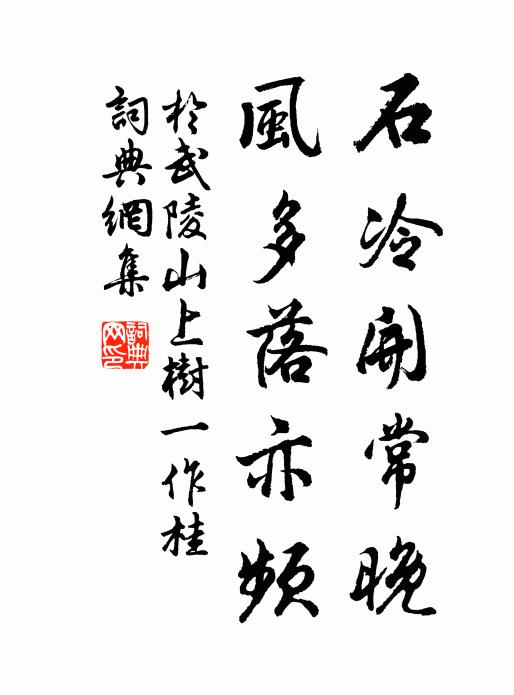 石冷開常晚
風多落亦頻
於武陵山上樹一作桂
詞典網集
詞典網印